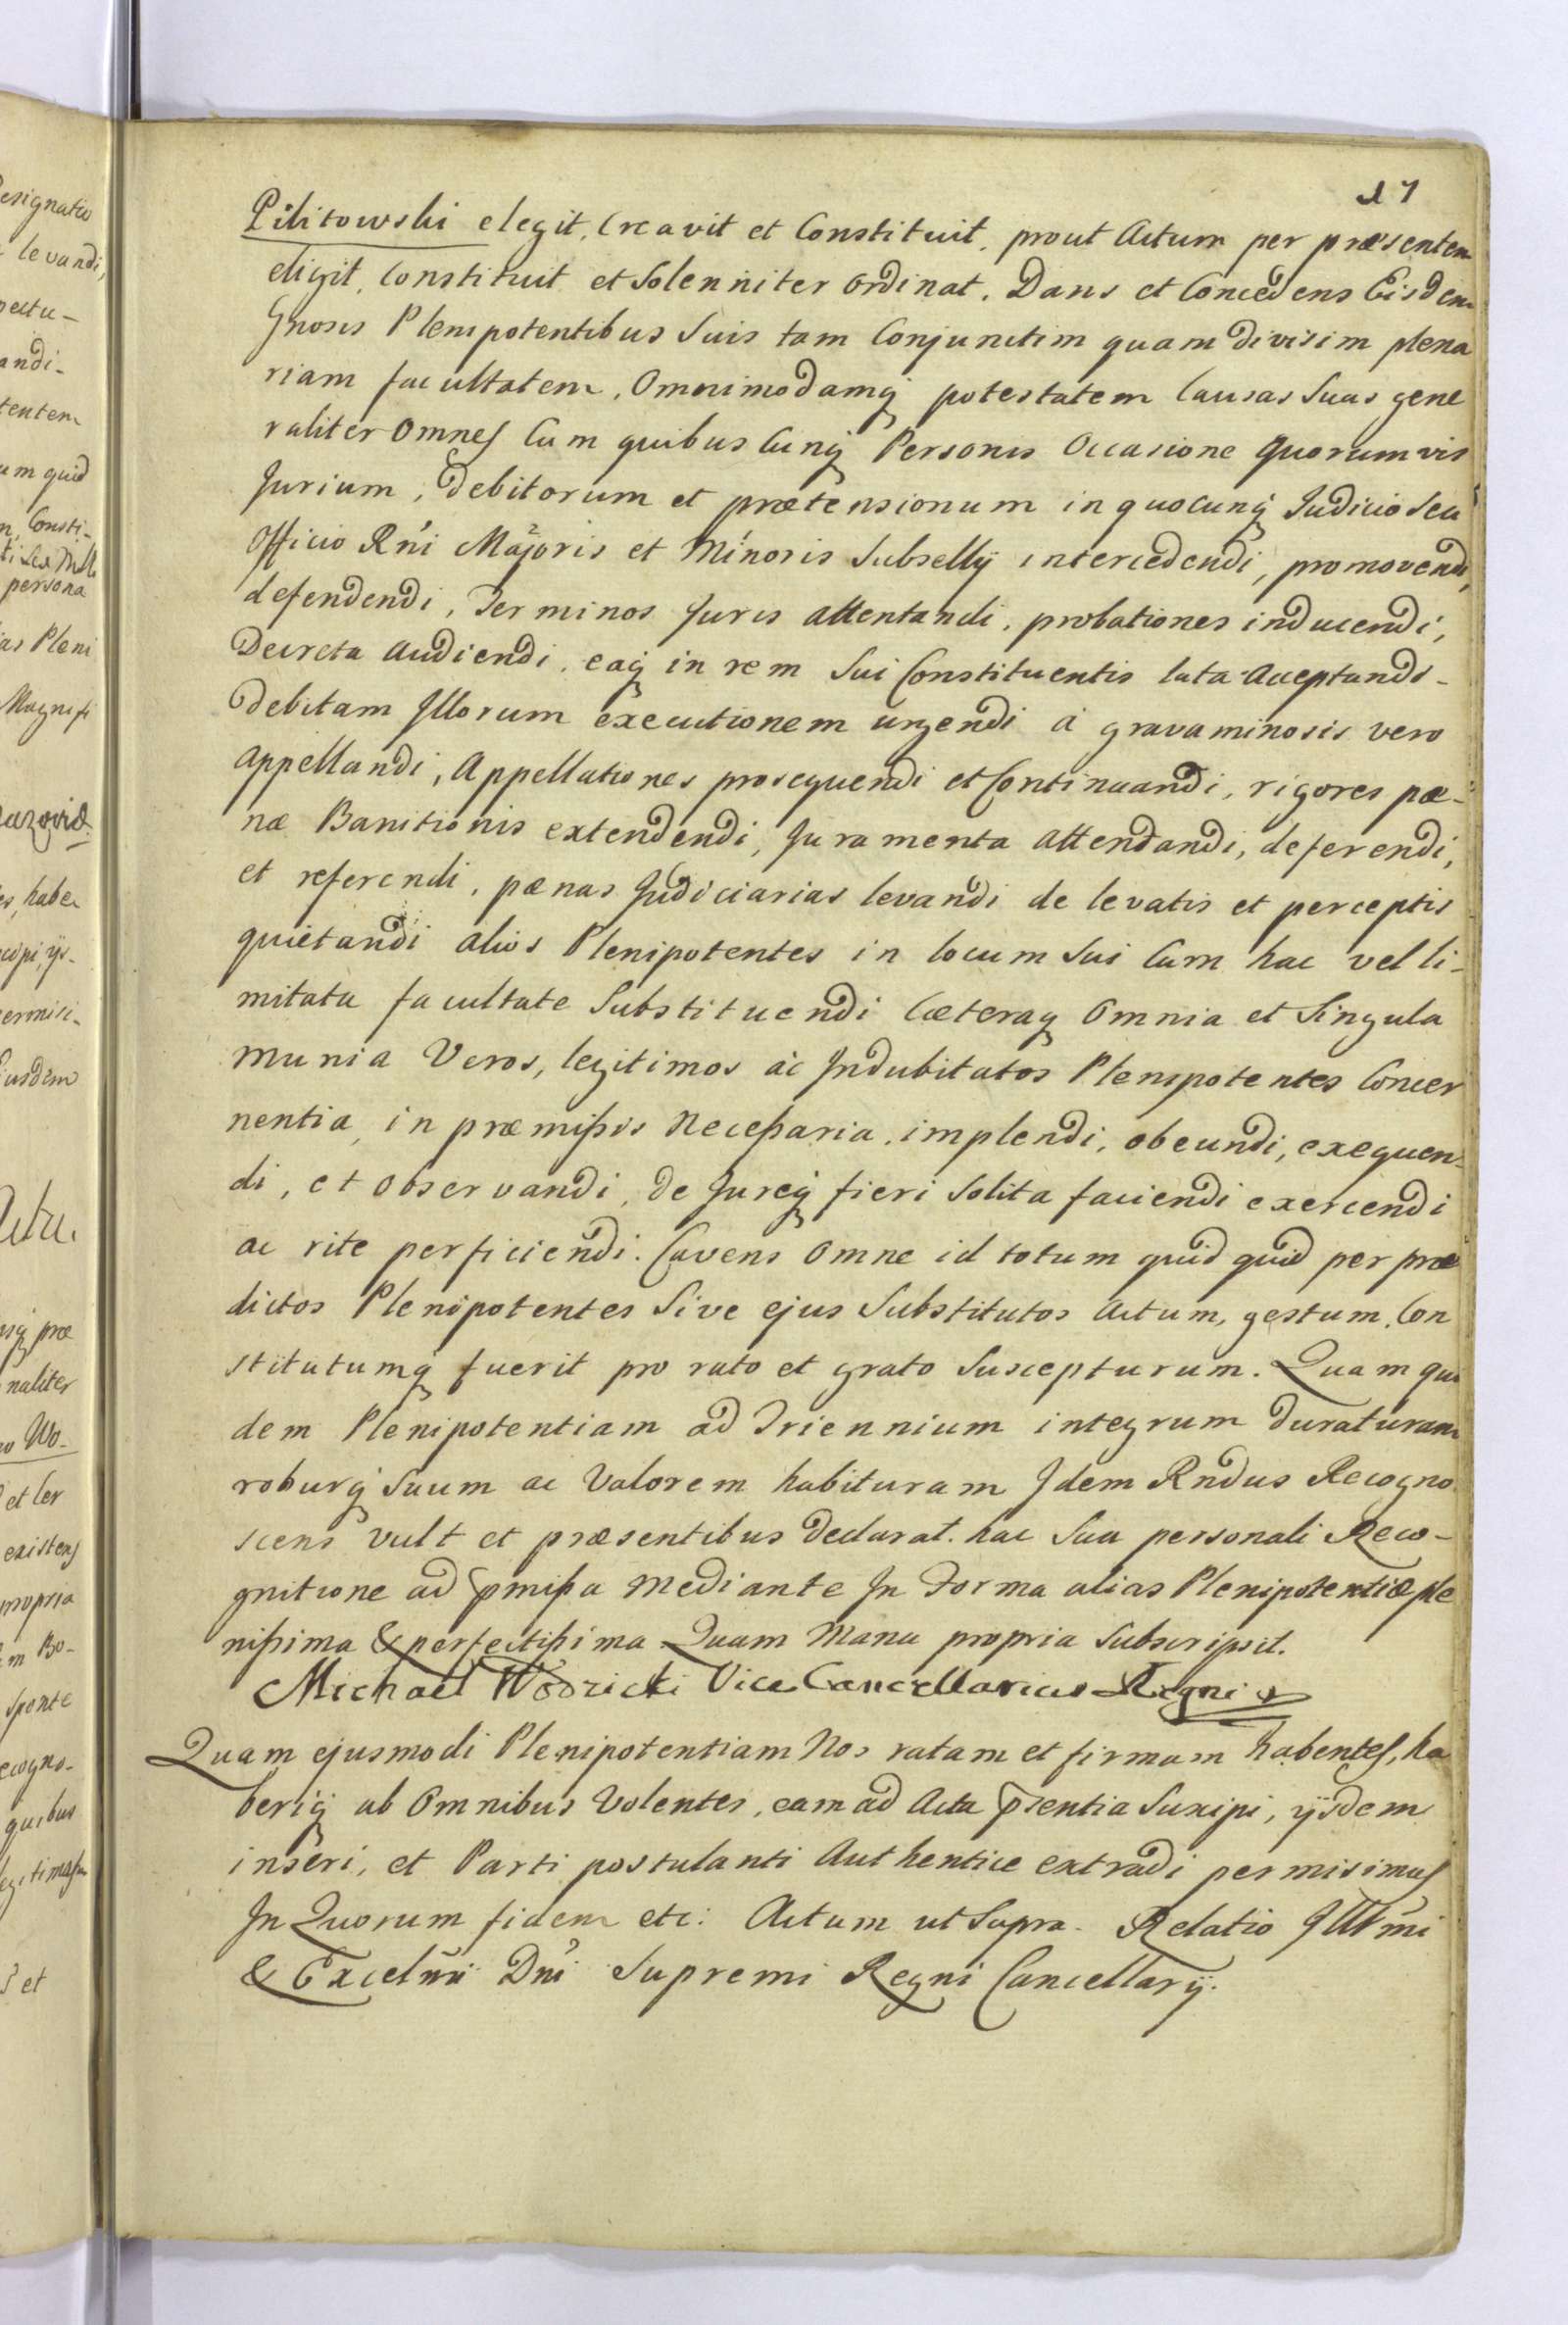 17
Pilitowski elegit, Creavit et Constituit, prout Actum per præsentem
eligit, Constituit et Solenniter Ordinat. Dans et Concedens Eisdem
Gnosis Plenipotentibus Suis tam Conjunctim quam divisim plena
riam facultatem, Omnimodamq potestatem Causas Suas gene
raliter Omnes Cum quibus Cunq Personis Occasione quorumvis
Jurium, Debitorum et prætensionum in quocunq Judicio Seu
Officio Rni Majoris et Minoris Subsellÿ intercedendi, promovendi,
defendendi, Terminos Juris attentandi, probationes inducendi,
Decreta Audiendi, eaq in rem Sui Constituentis lata Acceptandi-
Debitam Jllorum executionem urgendi á gravaminosis vero
appellandi, Appellationes prosequendi et Continuandi, rigores pæ-
næ Banitionis extendendi, Juramenta attendandi, deferendi,
et referendi, pænas Judiciarias levandi de levatis et perceptis
quietandi alios Plenipotentes in locum Sui Cum hac vel li-
mitata facultate Substituendi Cæteraq Omnia et Singula
munia Veros, legitimos ác Jndubitatos Plenipotentes Concer
nentia, in præmißis Neceßaria, implendi, obeundi, exequen-
di, et Observandi, de Jureq fieri Solita faciendi exercendi
ac rite perficiendi. Cavens Omne id totum quid quid per præ
dictos Plenipotentes Sive ejus Substitutos Actum, gestum, Con
stitutumq fuerit pro rato et grato Suscepturum. Quam qui
dem Plenipotentiam ad Triennium integrum duraturam
roburq Suum ac Valorem habituram Jdem Rndus Recogno
scens vult et præsentibus declarat. hac Sua personali Reco-
gnitione ad pmißa Mediante Jn Forma alias Plenipotentiæ ple
nißima & perfectißima Quam Manu propria Subscripsit.
Michael Wodzicki Vice Cancellarius Regni
Quam ejusmodi Plenipotentiam Nos ratam et firmam habentes, ha
beriq ab Omnibus Volentes, eam ad Acta psentia Suscipi, ÿsdem
inseri, et Parti postulanti Authentice extradi permisimus
Jn Quorum fidem etc: Actum ut Supra. Relatio Jllmi
& Excelmi Dni Supremi Regni Cancellarÿ.